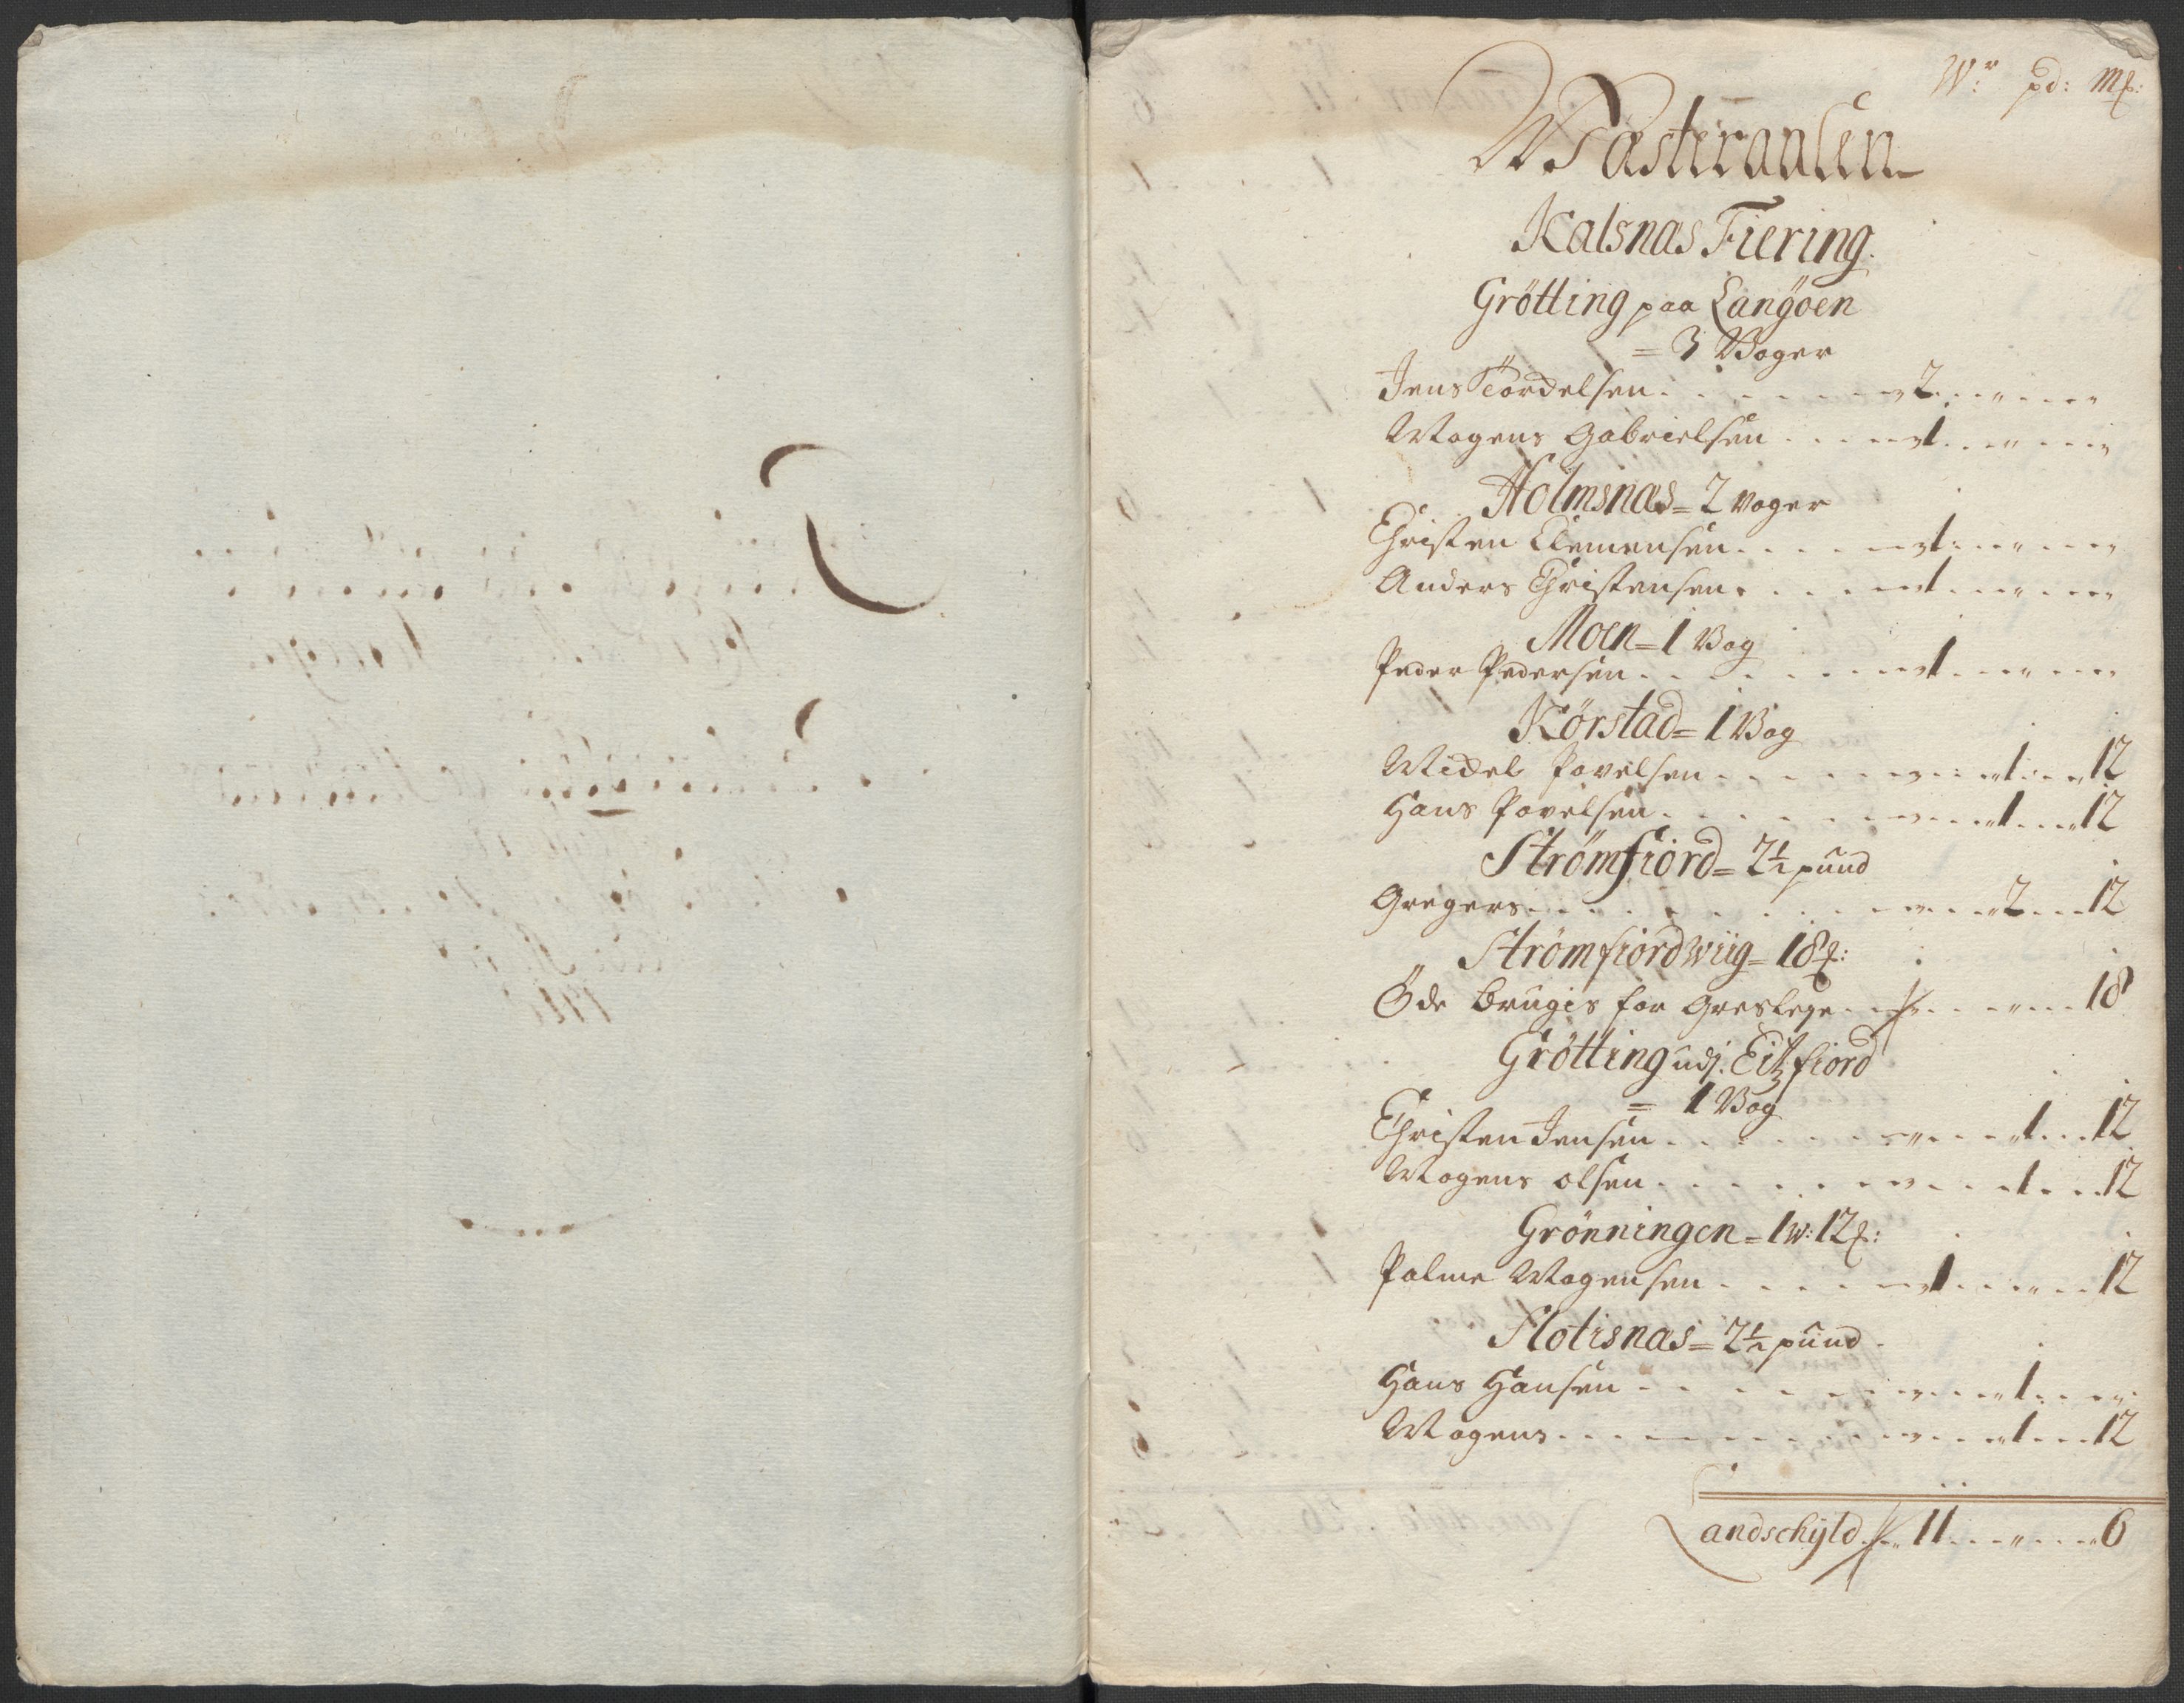 Wr: pd: mk:
Wæsteraalen
Kalsnas Fiering.
Grötting paa Langöen
= 3 Woger
Jens Tordelsen 2 " "
Mogens Gabrielsen 1 " "
Holmsnas = 2 Woger
Christen Clemensen 1 " "
Anders Christensen 1 " "
Moen = 1 Wog
Peder Pedersen 1 " "
Körstad = 1 Wog
Michel Povelsen " 1 12
Hans Povelsen " 1 12
Strömfiord = 2½ pund
Gregers " 2 12
Strömfiordwiig = 18 :
Öde brugis for Græsleye " " 18
Grötting udj: Eitzfiord
= 1 Wog
Christen Jensen " 1 12
Mogens olsen " 1 12
Grönningen = 1 w: 12 :
Palme Mogensen 1 " 12
Slotisnas = 2½ pund
Hans Hansen " 1 "
Mogens " 1 12
Landschyld 11 " 6